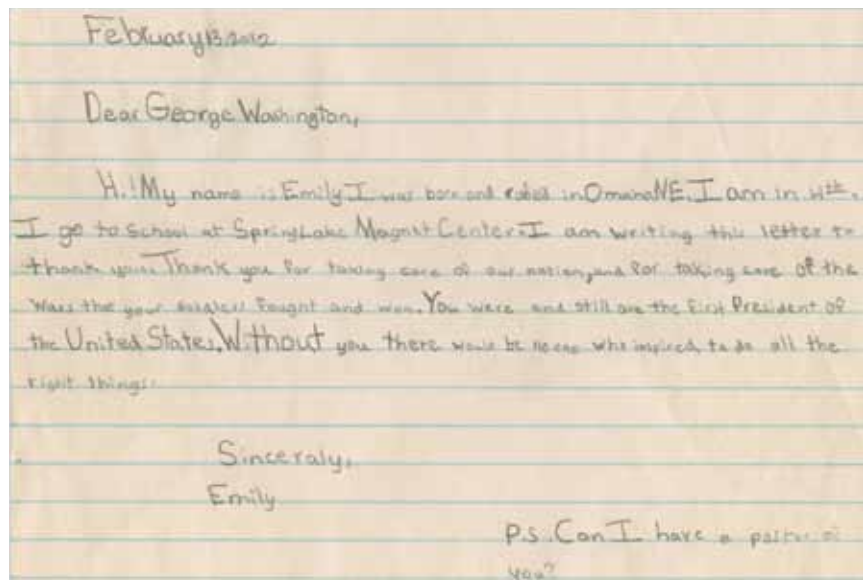 February 13, 2012
Dear George Washington,
Hi! My name is Emily. I was born and raised in Omaha NE. I am in 4th.
I go to school at Spring Lake Magnet Center. I am writing this letter to
thank you. Thank you for taking care of our nation, and for taking care of the
wars that your soldiers fought and won. You were and still are the first President of
the United States. Without you there would be no one who inspired, to do all the
right things.
Sinceraly,
Emily
P.S. Can I have a poster of
you?